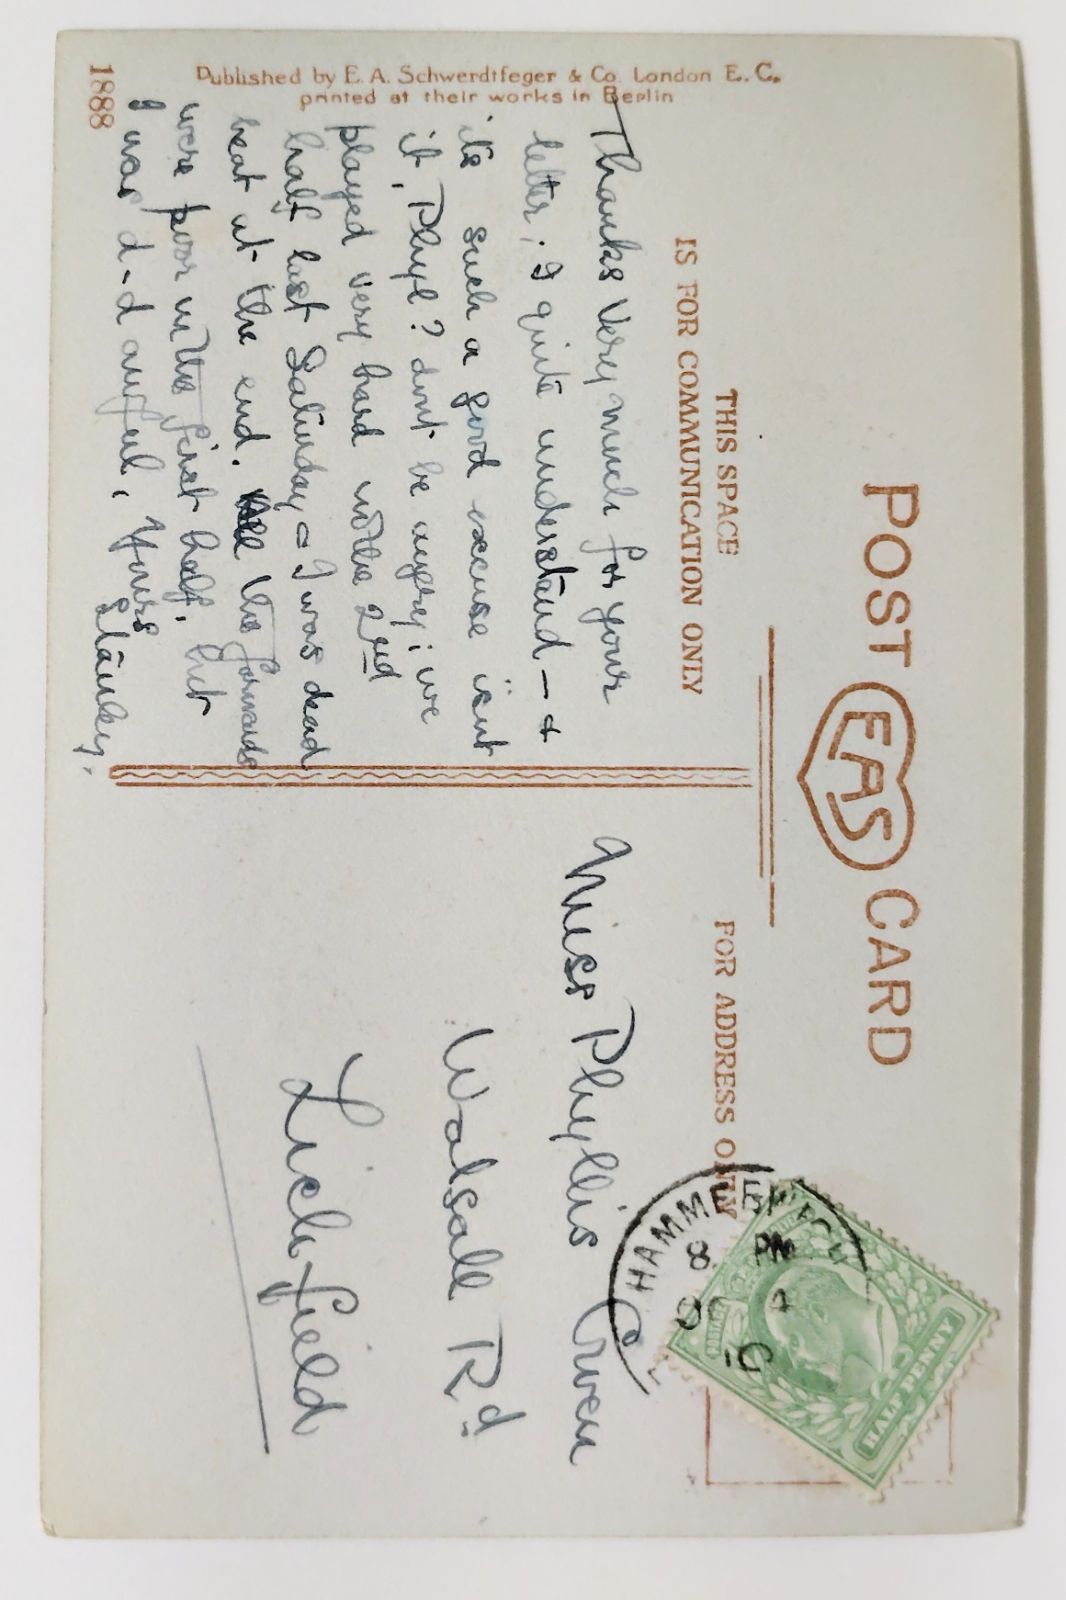 POST CARD
EAS
THIS SPACE
IS FOR COMMUNICATION ONLY
FOR ADDRESS ONLY
Published by E. A. Schwerdtfeger & Co. London E. C.
printed at their works in Berlin
1888
Thanks very much for your
letter; I quite understand – &
its such a good excuse isnt
it, Phyl? dont be angry; we
played very hard in the 2nd
half last Saturday = I was dead
beat at the end. the forwards
were poor in the first half, but
I was d-d awful, Yours
Stanley.
Miss Phyllis Owen
Walsall Rd
Lichfield
HAMMERWICH
8 PM
OC 4
10
HALF PENNY